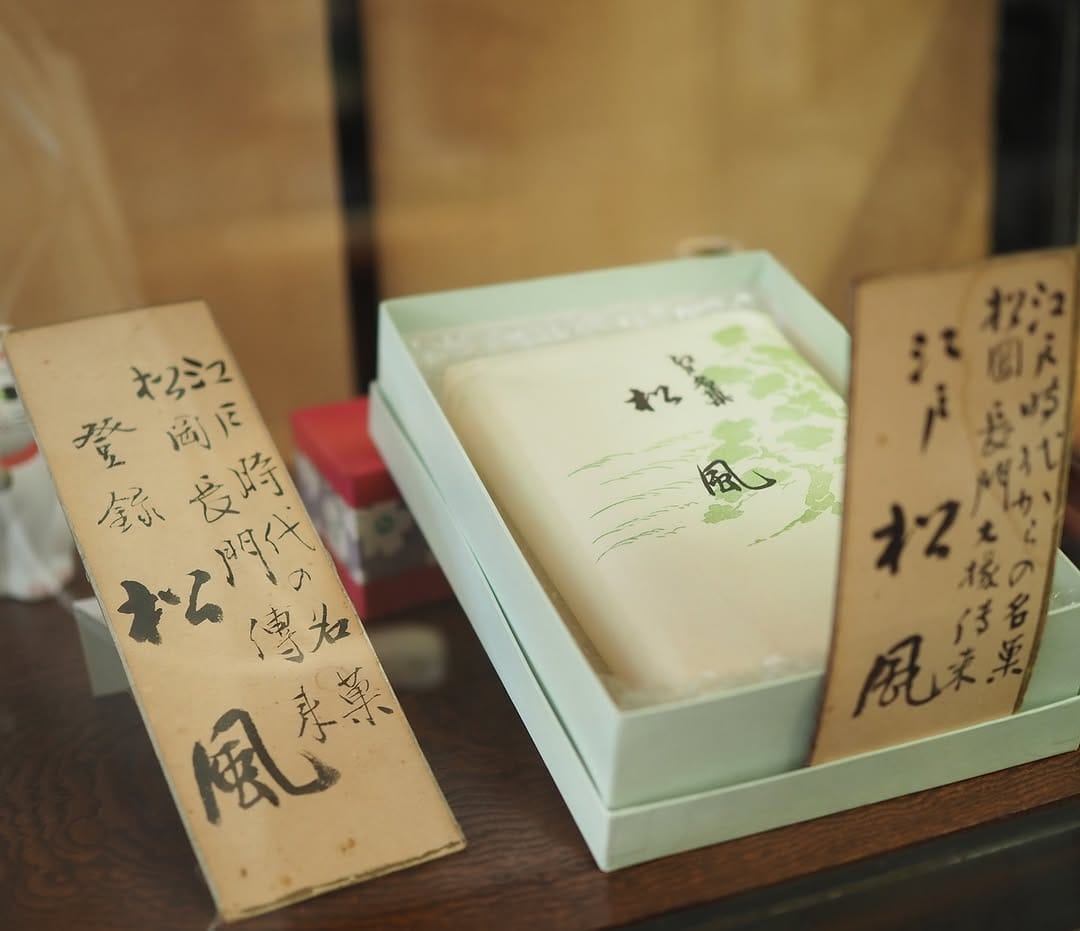 江戸時代の名菓
松岡長門傳来
登録
松風
名菓
松風
江戸時代からの名菓
松岡長門大掾傳来
江戸
松風